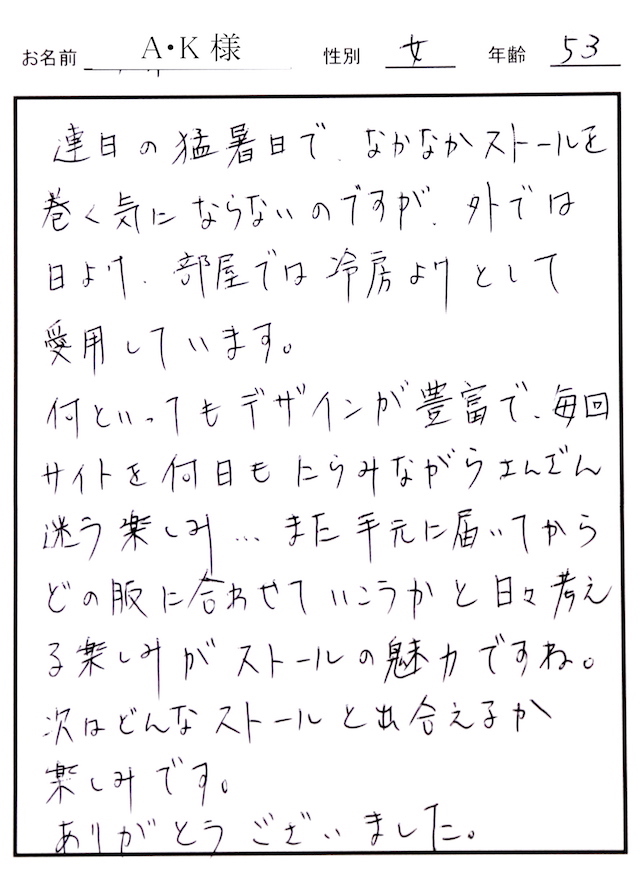 お名前 A・K 様 性別 女 年齢 53
連日の猛暑日で、なかなかストールを
巻く気にならないのですが、外では
日よけ、部屋では冷房よけとして
愛用しています。
何といってもデザインが豊富で、毎回
サイトを何日もにらみながらさんざん
迷う楽しみ…また手元に届いてから
どの服に合わせていこうかと日々考え
る楽しみがストールの魅力ですね。
次はどんなストールと出合えるか
楽しみです。
ありがとうございました。